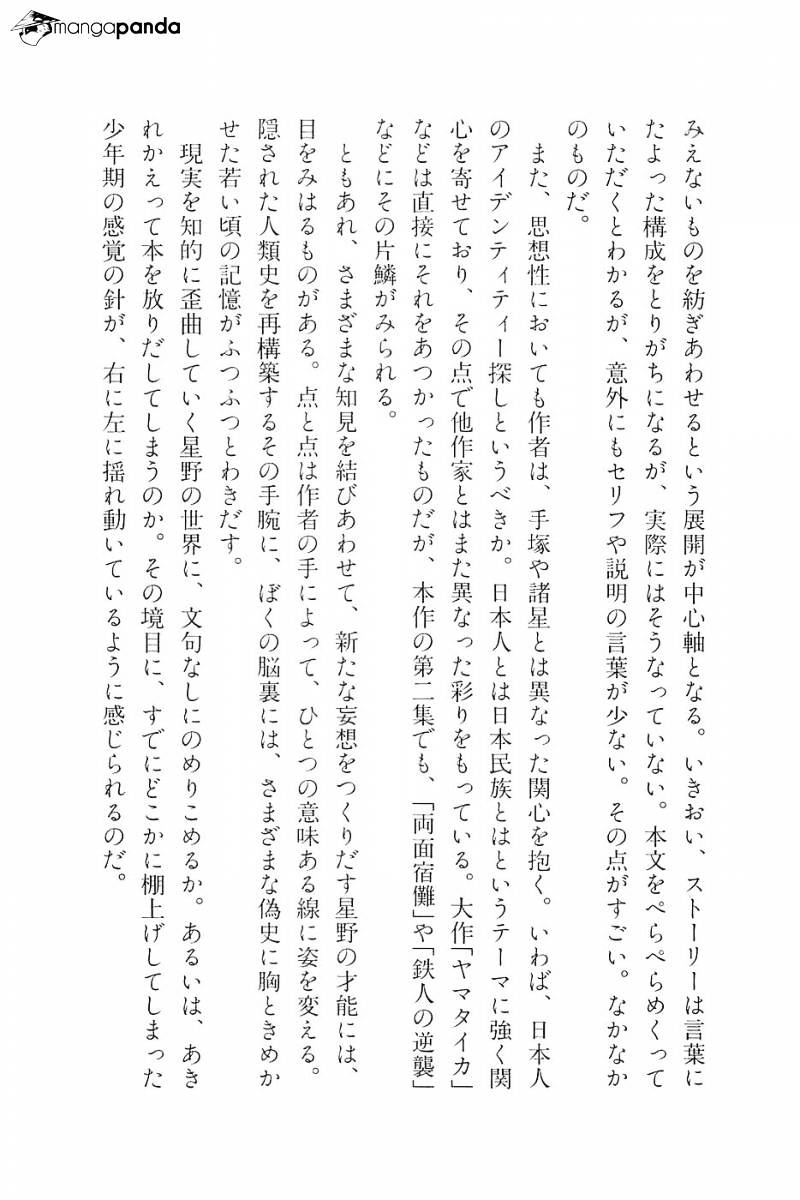 mangapanda
みえないものを紡ぎあわせるという展開が中心軸となる。いきおい、ストーリーは言葉に
たよった構成をとりがちになるが、実際にはそうなっていない。本文をぺらぺらめくって
いただくとわかるが、意外にもセリフや説明の言葉が少ない。その点がすごい。なかなか
のものだ。
また、思想性においても作者は、手塚や諸星とは異なった関心を抱く。いわば、日本人
のアイデンティティー探しというべきか。日本人とは日本民族とはというテーマに強く関
心を寄せており、その点で他作家とはまた異なった彩りをもっている。大作「ヤマタイカ」
などは直接にそれをあつかったものだが、本作の第二集でも、「両面宿儺」や「鉄人の逆襲」
などにその片鱗がみられる。
ともあれ、さまざまな知見を結びあわせて、新たな妄想をつくりだす星野の才能には、
目をみはるものがある。点と点は作者の手によって、ひとつの意味ある線に姿を変える。
隠された人類史を再構築するその手腕に、ぼくの脳裏には、さまざまな偽史に胸ときめか
せた若い頃の記憶がふつふつとわきだす。
現実を知的に歪曲していく星野の世界に、文句なしにのめりこめるか。あるいは、あき
れかえって本を放りだしてしまうのか。その境目に、すでにどこかに棚上げしてしまった
少年期の感覚の針が、右に左に揺れ動いているように感じられるのだ。